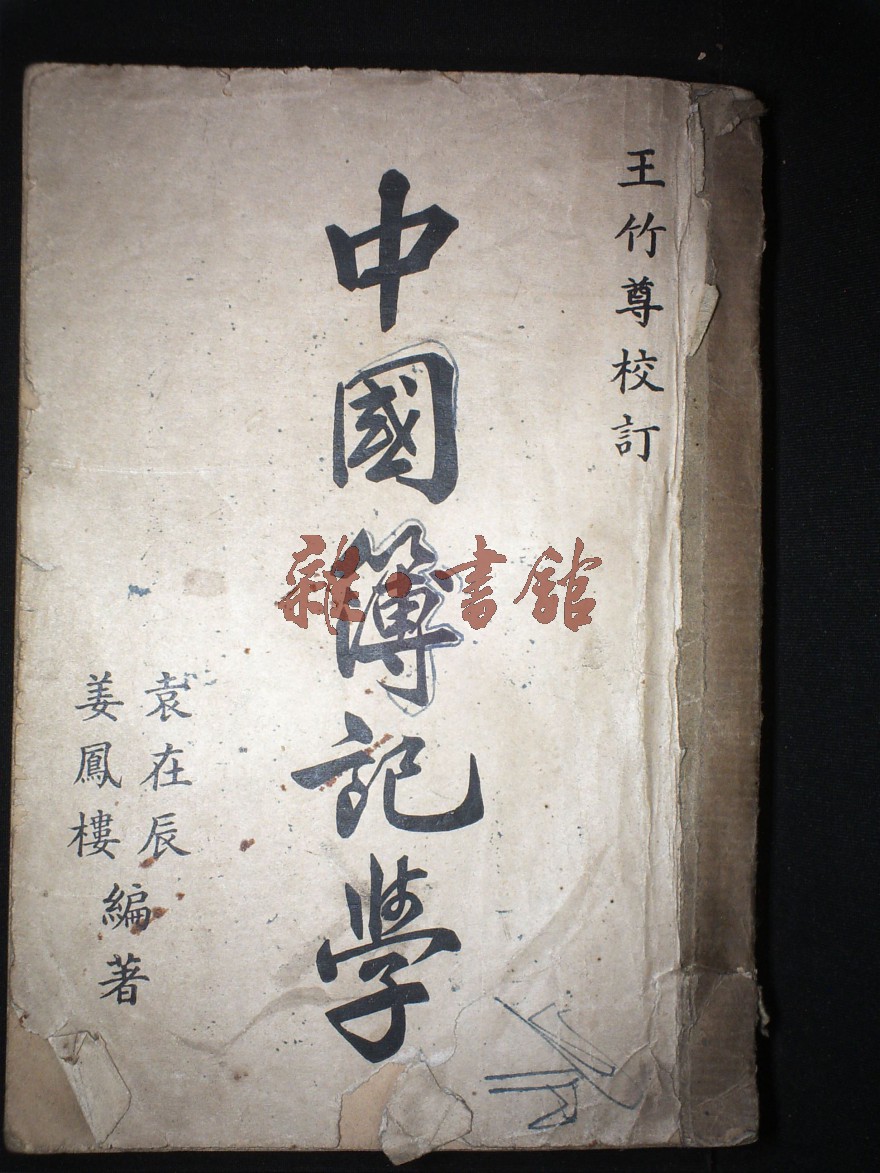 王竹尊校訂
中國簿記學
袁在辰
姜鳳樓
編著
雜·書館